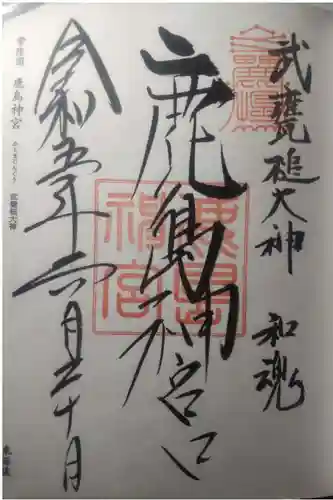 武甕槌大神 和魂
鹿島神宮
鹿島神宮
令和五年六月二十日
常陸國 鹿島神宮 武甕槌大神